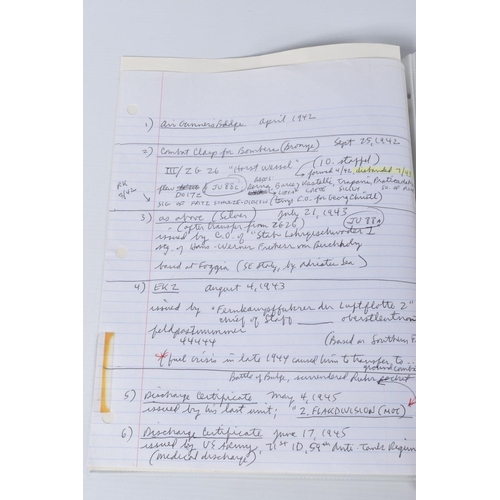 1) Air Gunners Badge april 1942
2) Combat Clasp for Bombers (Bronze) Sept 25, 1942
III/ZG 26 "Horst Wessel" (10. staffel)
formed 4/42, disbanded 7/43
flew JU 88C
3) as above (Silver) July 21, 1943
(after transfer from ZG26) JU 88a
issued by C.O. of "Stab Lehrgeschwader 1
sig. of Hans-Werner Freiherr von Buchholz
based at Foggia (SE Italy, by Adriatic Sea)
4) EK 2 august 4, 1943
issued by "Fernkampfführer der Luftflotte 2"
chief of Staff ____ oberstleutnan
feldpostnummer
44444 (Based on Southern F
* fuel crisis in late 1944 caused him to transfer to...
ground combat
Battle of Bulge, surrendered Ruhr pocket
5) Discharge Certificate May 4, 1945
issued by his last unit; "2. FLAKDIVISION (MOT)
6) Discharge Certificate June 17, 1945
issued by US Army, 1st ID, 59th Anti-Tank Regim
(medical discharge)